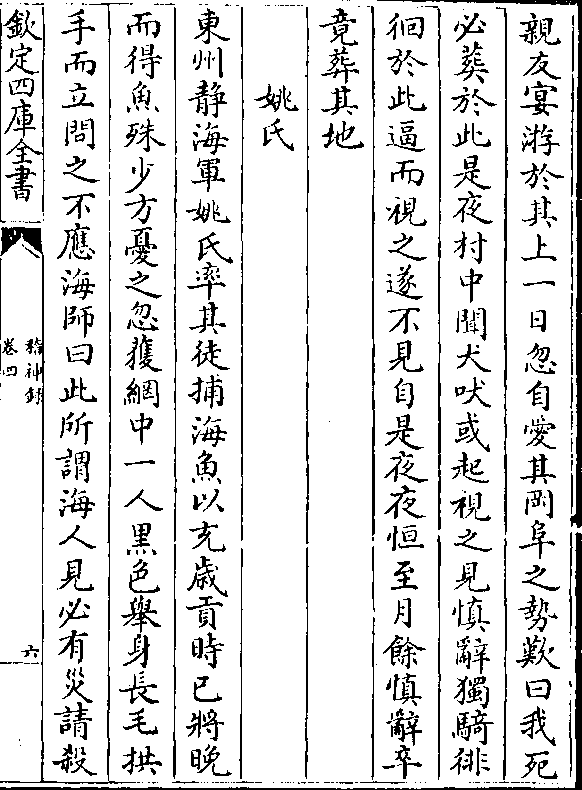 親友宴游於其上一日忽自愛其岡阜之勢歎曰我死
必葬於此是夜村中聞犬吠或起視之見慎辭獨騎徘
徊於此逼而視之遂不見自是夜夜恒至月餘慎辭卒
竟葬其地
姚氏
東州静海軍姚氏率其徒捕海魚以充歳貢時已將晚
而得魚殊少方憂之忽獲網中一人黒色舉身長毛拱
手而立問之不應海師曰此所謂海人見必有災請殺
欽定四庫全書
稽神錄
卷四
六